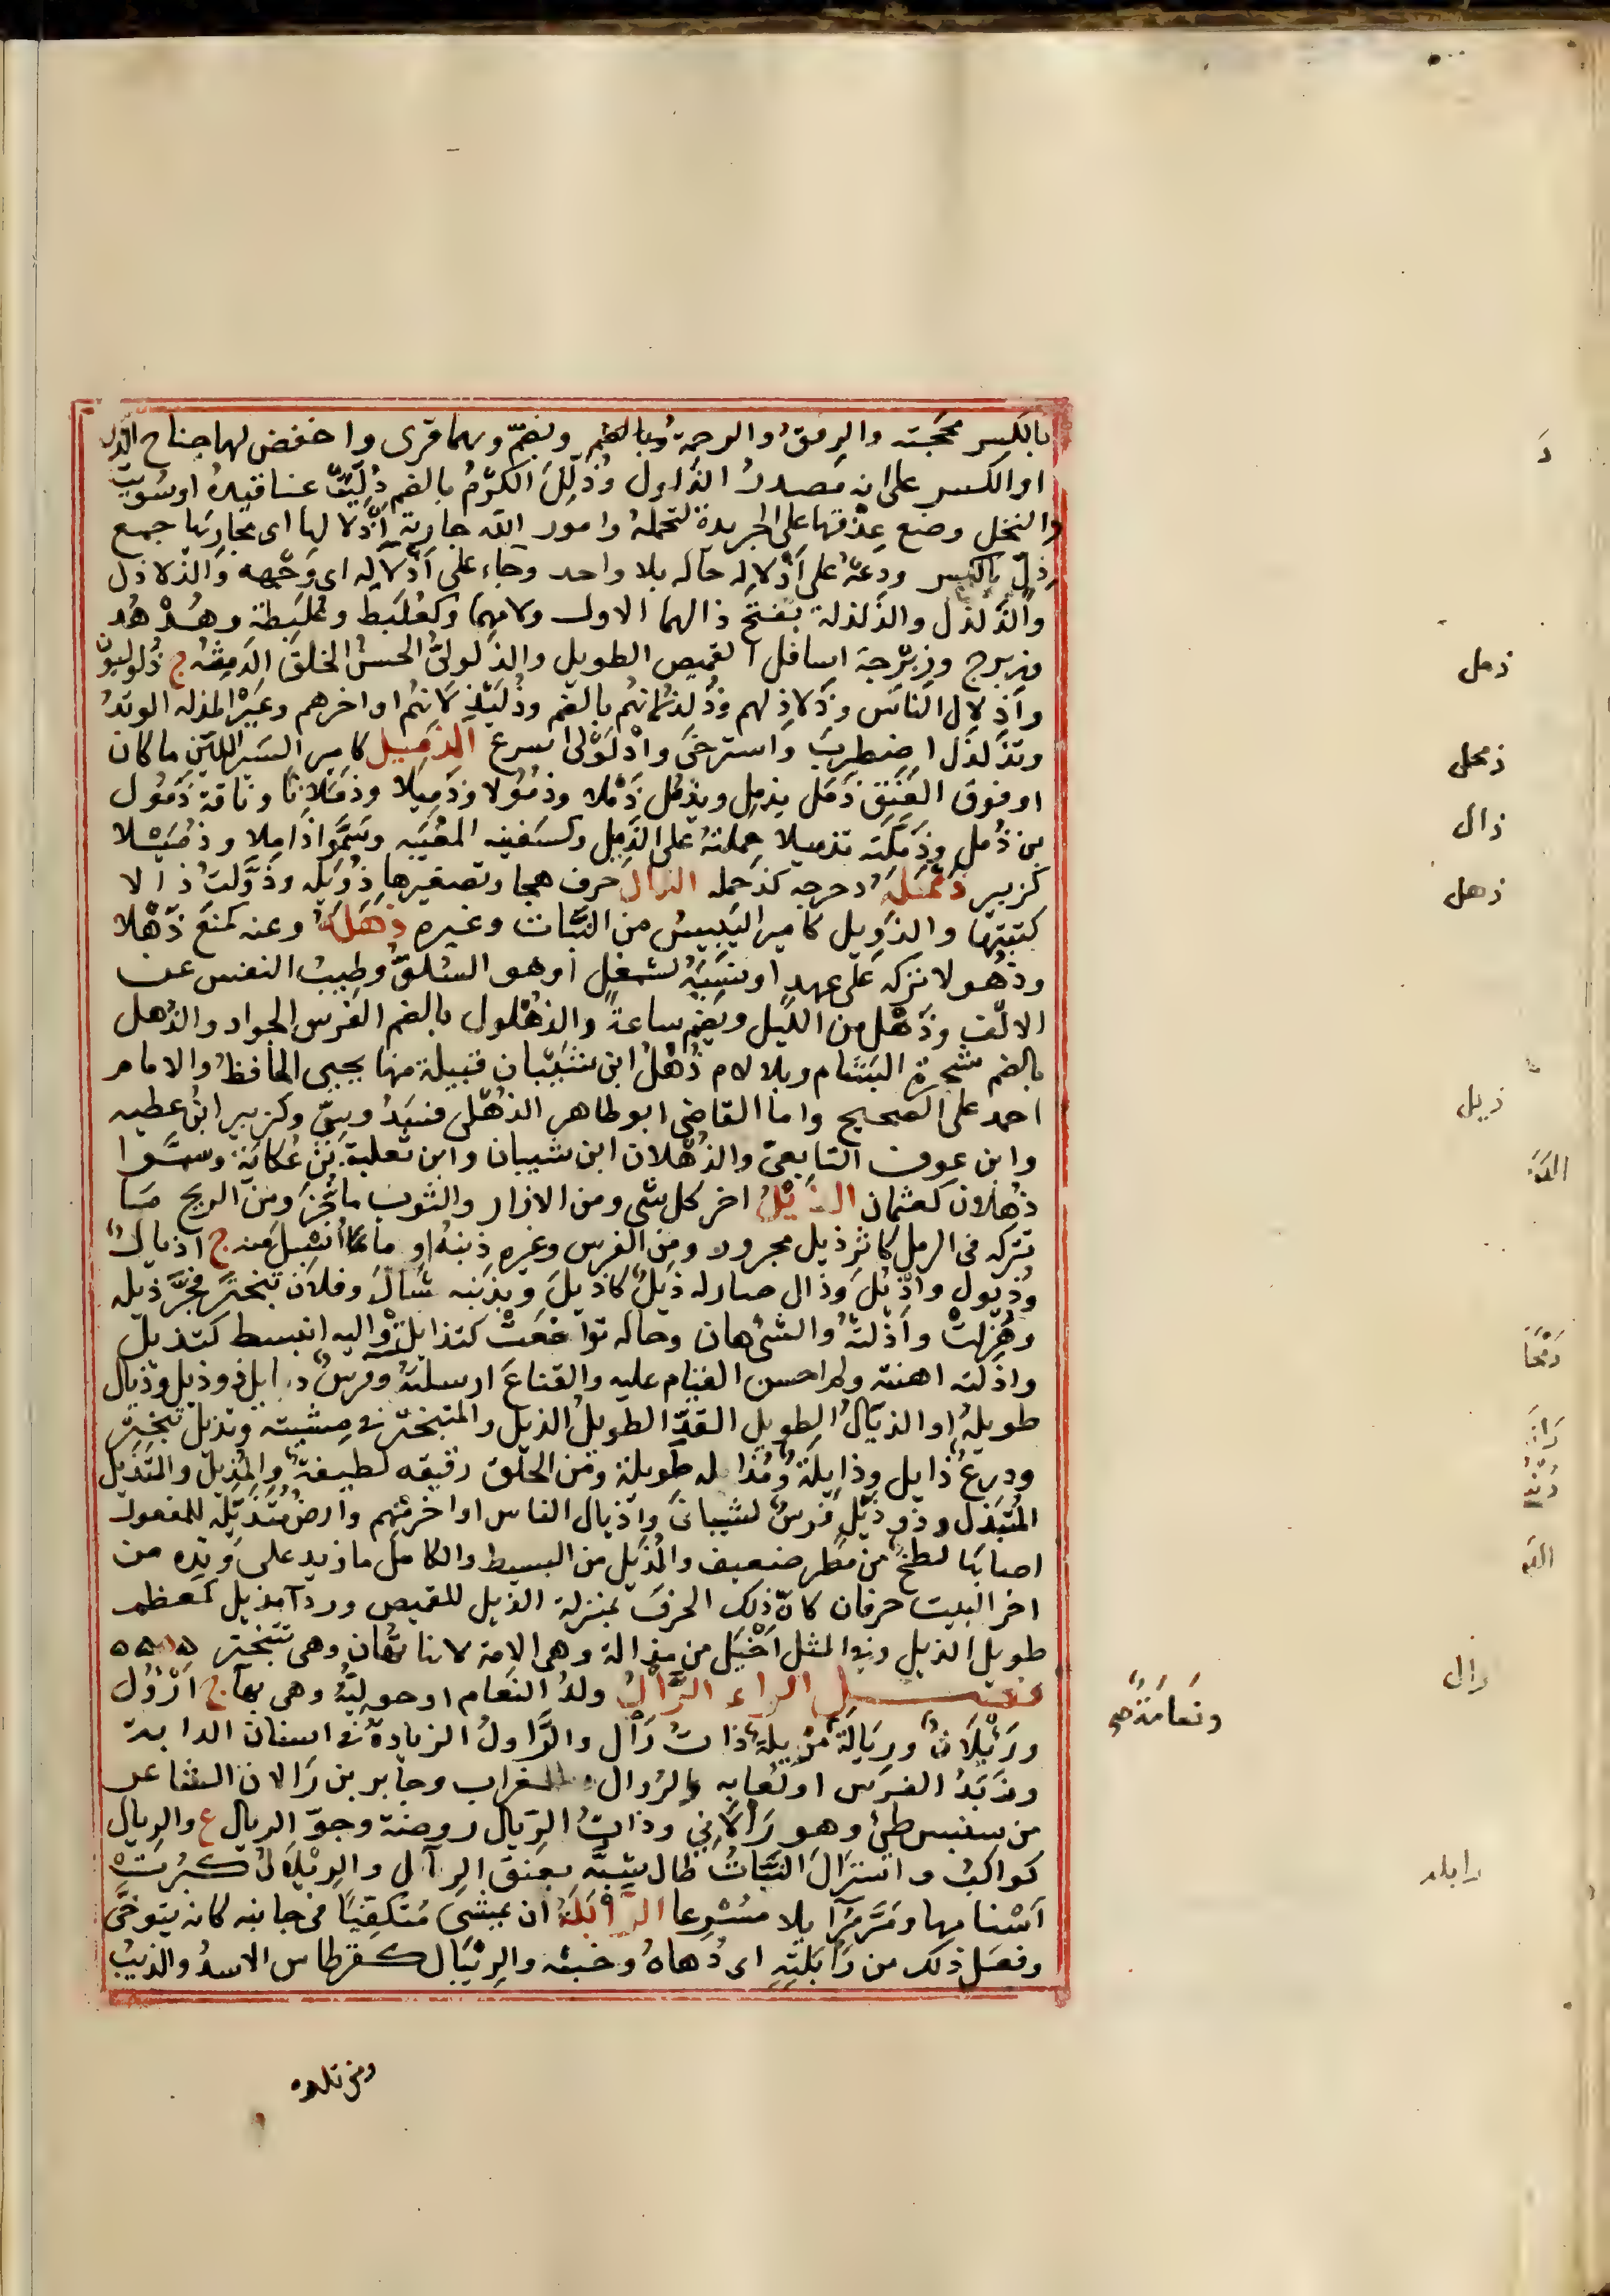 بالكسر محجته والرفق والرحمة وبالضم ويضم وبهما قرى واخفض لهما جناح الذل
او الكسر على انه مصدر الذلول وذُلِّلَ الكرْمُ بالضم دُلِّيَتْ عناقيده او سُوِّيت
والنخل وضع عذقها على الجريدة لتحمله وامور الله جارية اذلالها اى مجاريها جمع
ذِلّ بالكسر ودعه على اذلاله حاله بلا واحد وجاء على اذلاله اى وجهه والذلاذل
والذلذل والذلذلة بفتح ذالهما الاولى ولامهما وكعُلَبِط وعُلَبِطة وهُدْهُد
وزبرج وزبرجة اسافل القميص الطويل والذلولىُّ الحسن الخلق الدمثه ج ذلوليون
واذلال الناس وذلاذلهم وذلذلاتهم بالضم وذليذلاتهم اواخرهم وعير المذلة الوتد
وتذلذل اضطرب واسترخى واذلولى اسرع الذميل كامير السير اللين ما كان
او فوق العنق ذمل يذمل ويذمل ذملا وذمولا وذميلا وذملانا وناقة ذمول
من ذمل وذملته تذميلا حملته على الذميل وكسفينه المعيبه وسموا ذاملا وذميلا
كزبير ذمحله دحرجه كذحمله الذال حرف هجا وتصغيرها ذويله وذولت ذالا
كتبتها والذويل كامير اليبيس من النبات وغيره ذهله وعنه كمنع ذهلا
وذهولا تركه على عهد او نسيه لشغل او هو السلو وطيب النفس عن
الالف وذهل من الليل ويضم ساعة والذهلول بالضم الفرس الجواد والذهل
بالضم شجرة البشام وبلا لام ذهل ابن شيبان قبيلة منها يحيى الحافظ والامام
احمد على الصحيح واما القاضى ابو طاهر الذهلى فسدوسى وكزبير ابن عطيه
وابن عوف التابعى والذهلان ابن شيبان وابن ثعلبة بن عكابة وسموا
ذهلان كعثمان الذيل اخر كل شى ومن الازار والثوب ما جر ومن الريح ما
تتركه فى الرمل كاثر ذيل مجرور ومن الفرس وغيره ذنبه او ما اسبل منه ج اذيال
وذيول واذيل وذال صار له ذيل كاذيل وبذنبه شال وفلان تبختر فجر ذيله
وهزلت واذلته والشى هان وحاله تواضعت كتذايلت واليه انبسط كتذيل
واذلته اهنته ولم احسن القيام عليه والقناع ارسلته وفرس ذايل ذو ذيل وذيال
طويله او الذيال الطويل القد الطويل الذيل والمتبختر فى مشيته وتذيل تبختر
ودرع ذايل وذايلة ومذاله طويلة ومن الحلق رقيقه لطيفة والمذيل والمتذيل
المتبذل وذو ذيل فرس لشيبان واذيال الناس اواخرهم وارض متذيله للمفعول
اصابها لطخ من مطر ضعيف والمذيل من البسيط والكامل ما زيد على وتده من
اخر البيت حرفان كان ذلك الحرف بمنزلة الذيل للقميص وردا مذيل كمعظم
طويل الذيل وفى المثل اخيل من مذالة وهى الامة لانها تهان وهى تتبختر
فصل الراء الرأل ولد النعام او حوليه وهى بهآ ج ارؤل
ورئلان ورئال ورئالة ونعامة مرئلة ذات رأل والراؤل الزيادة فى اسنان الدابة
وزبد الفرس او لعابه كالرؤال والغراب وجابر بن رألان الشاعر
من سنبس طى وهو رألانى وذات الرئال روضة وجو الرئال ع والرئال
كواكب واسترأل النبات طال شبه بعنق الرأل والرئلان كبرت
اسنانها ومر مرائلا مسرعا الرابلة ان يمشى متكفيا فى جانبه كانه يتوخى
وفعل ذلك من رابلته اى دهاه وخبثه والرئبال كقرطاس الاسد والذئب
ونعامة صح
ذمل
ذمحل
ذال
ذهل
ذيل
رال
رابله